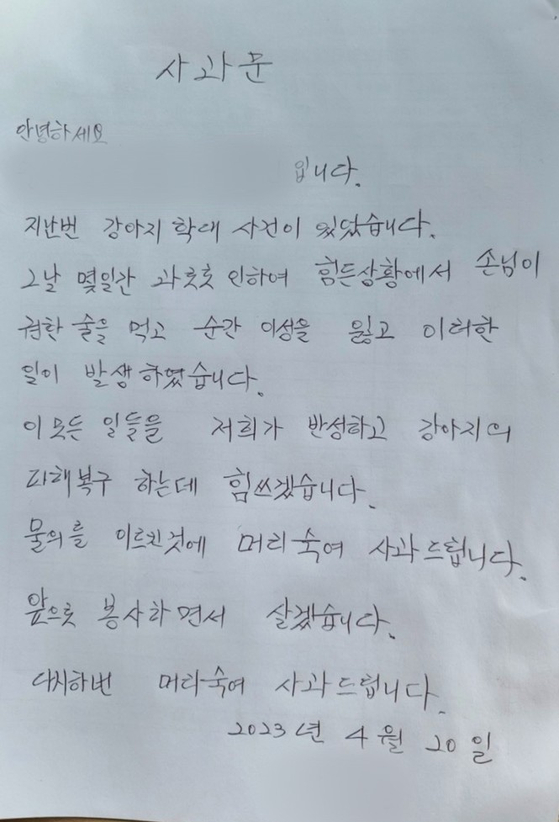 사과문
안녕하세요
입니다.
지난번 강아지 학대 사건이 있었습니다.
그날 몇일간 과로로 인하여 힘든상황에서 손님이
권한 술을 먹고 순간 이성을 잃고 이러한
일이 발생하였습니다.
이 모든 일들을 저희가 반성하고 강아지의
피해복구 하는데 힘쓰겠습니다.
물의를 이르킨것에 머리숙여 사과드립니다.
앞으로 봉사하면서 살겠습니다.
다시한번 머리숙여 사과드립니다.
2023년 4월 20일